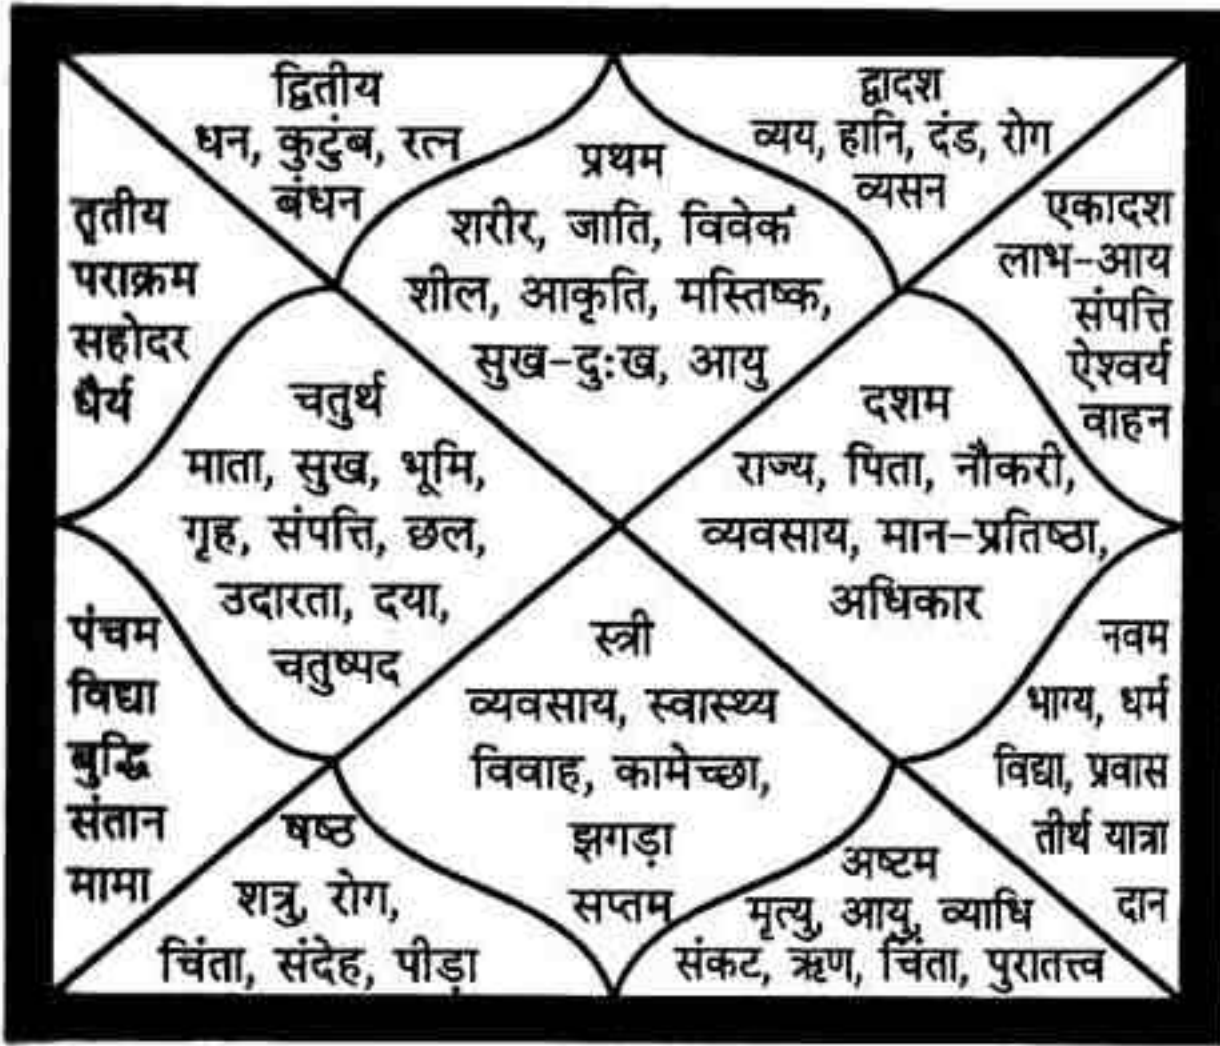 द्वितीय
धन, कुटुंब, रत्न
बंधन
प्रथम
शरीर, जाति, विवेक
शील, आकृति, मस्तिष्क,
सुख-दुःख, आयु
द्वादश
व्यय, हानि, दंड, रोग
व्यसन
तृतीय
पराक्रम
सहोदर
धैर्य
एकादश
लाभ-आय
संपत्ति
ऐश्वर्य
वाहन
चतुर्थ
माता, सुख, भूमि,
गृह, संपत्ति, छल,
उदारता, दया,
चतुष्पद
दशम
राज्य, पिता, नौकरी,
व्यवसाय, मान-प्रतिष्ठा,
अधिकार
पंचम
विद्या
बुद्धि
संतान
मामा
स्त्री
व्यवसाय, स्वास्थ्य
विवाह, कामेच्छा,
झगड़ा
सप्तम
नवम
भाग्य, धर्म
विद्या, प्रवास
तीर्थ यात्रा
दान
षष्ठ
शत्रु, रोग,
चिंता, संदेह, पीड़ा
अष्टम
मृत्यु, आयु, व्याधि
संकट, ऋण, चिंता, पुरातत्त्व